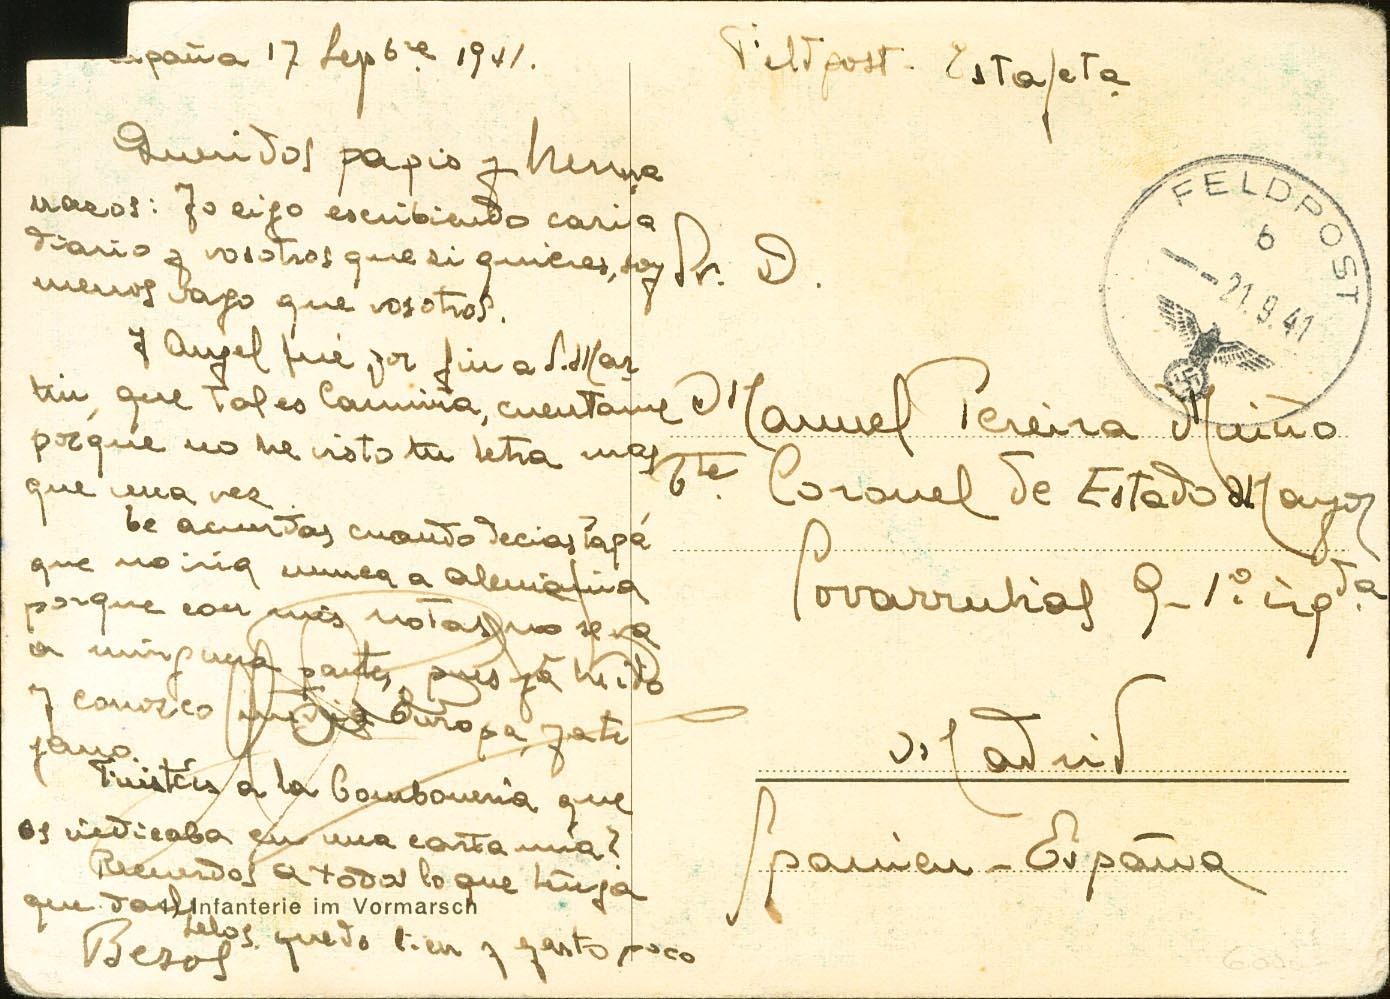 España 17 Sepbre 1941.
Queridos papis y herma
nacos: Yo sigo escribiendo casi a
diario y vosotros que si quieres, soy
menos vago que vosotros.
Y Angel fué por fin a S. Mar
tin, que tal es Camiña, cuentame
porque no he visto tu letra mas
que una vez.
te acuerdas cuando decias Papá
que no iria nunca a alemania
porque con mis notas no se va
a ninguna parte, pues ya he ido
y conozco media Europa, fate
jano.
Fuisteis a la bomboneria que
os indicaba en una carta mia?
Recuerdos a todos lo que tenga
que dar
quedo bien y gasto poco
Besos
Infanterie im Vormarsch
Feldpost - Estafeta
FELDPOST
b
21.9.41
Sr. D.
Manuel Pereira Muiño
Tte. Coronel de Estado Mayor
Covarrubias 9-1º izqda
Madrid
Spanien - España